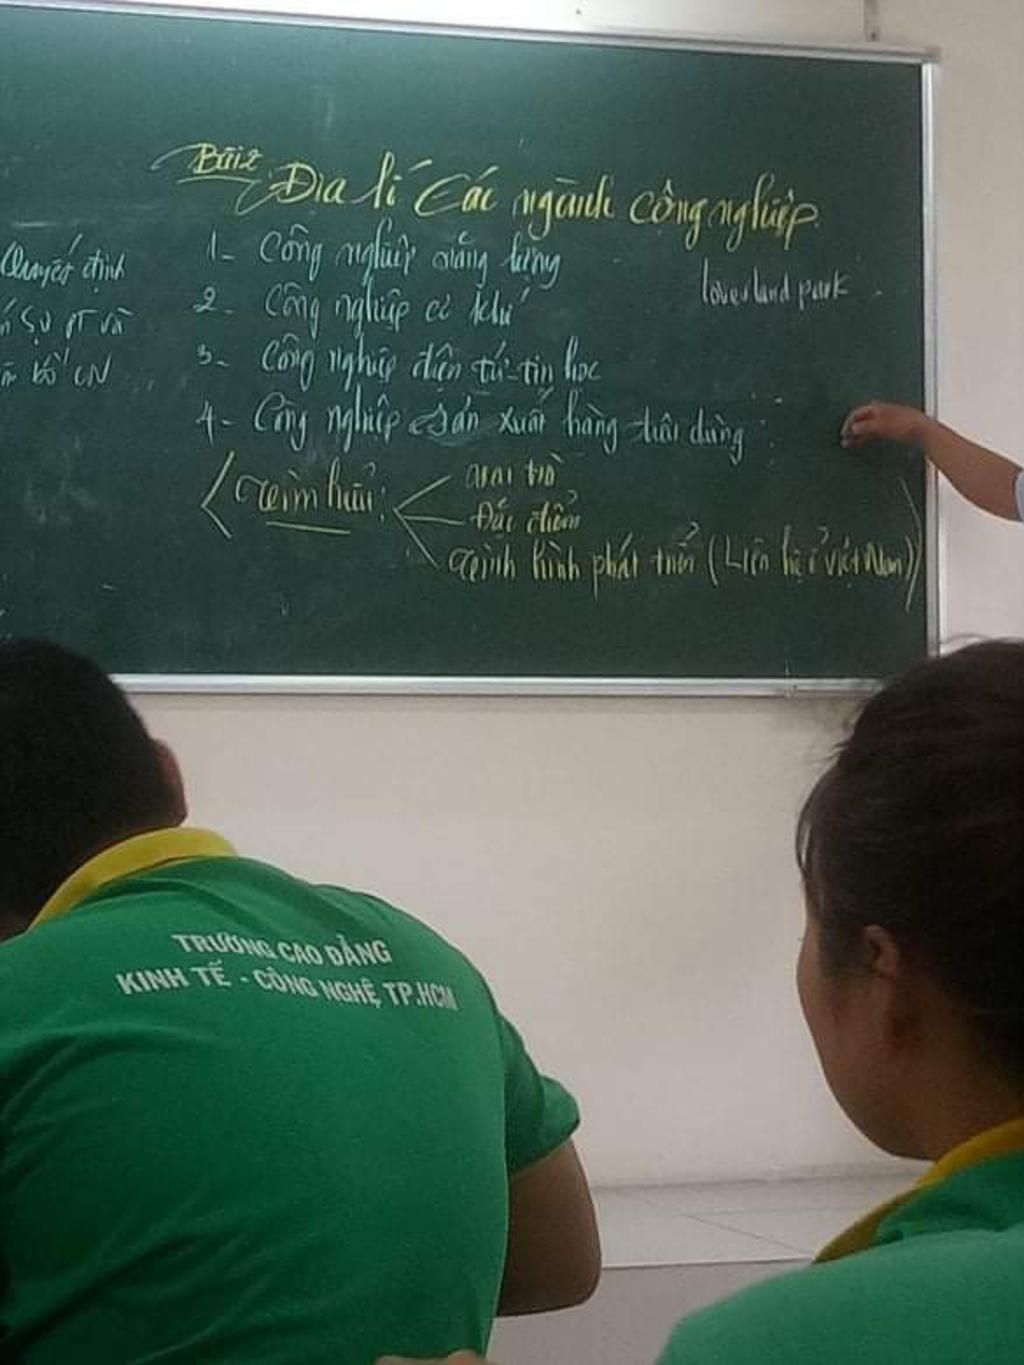 Bài 2: Địa lí các ngành công nghiệp
1- Công nghiệp năng lượng
2- Công nghiệp cơ khí
3- Công nghiệp điện tử-tin học
4- Công nghiệp sản xuất hàng tiêu dùng
Tìm hiểu:
Vai trò
Đặc điểm
Tình hình phát triển (Liên hệ ở Việt Nam)
quyết định
sự PT và
bố CN
loverland park
TRƯỜNG CAO ĐẲNG
KINH TẾ - CÔNG NGHỆ TP.HCM